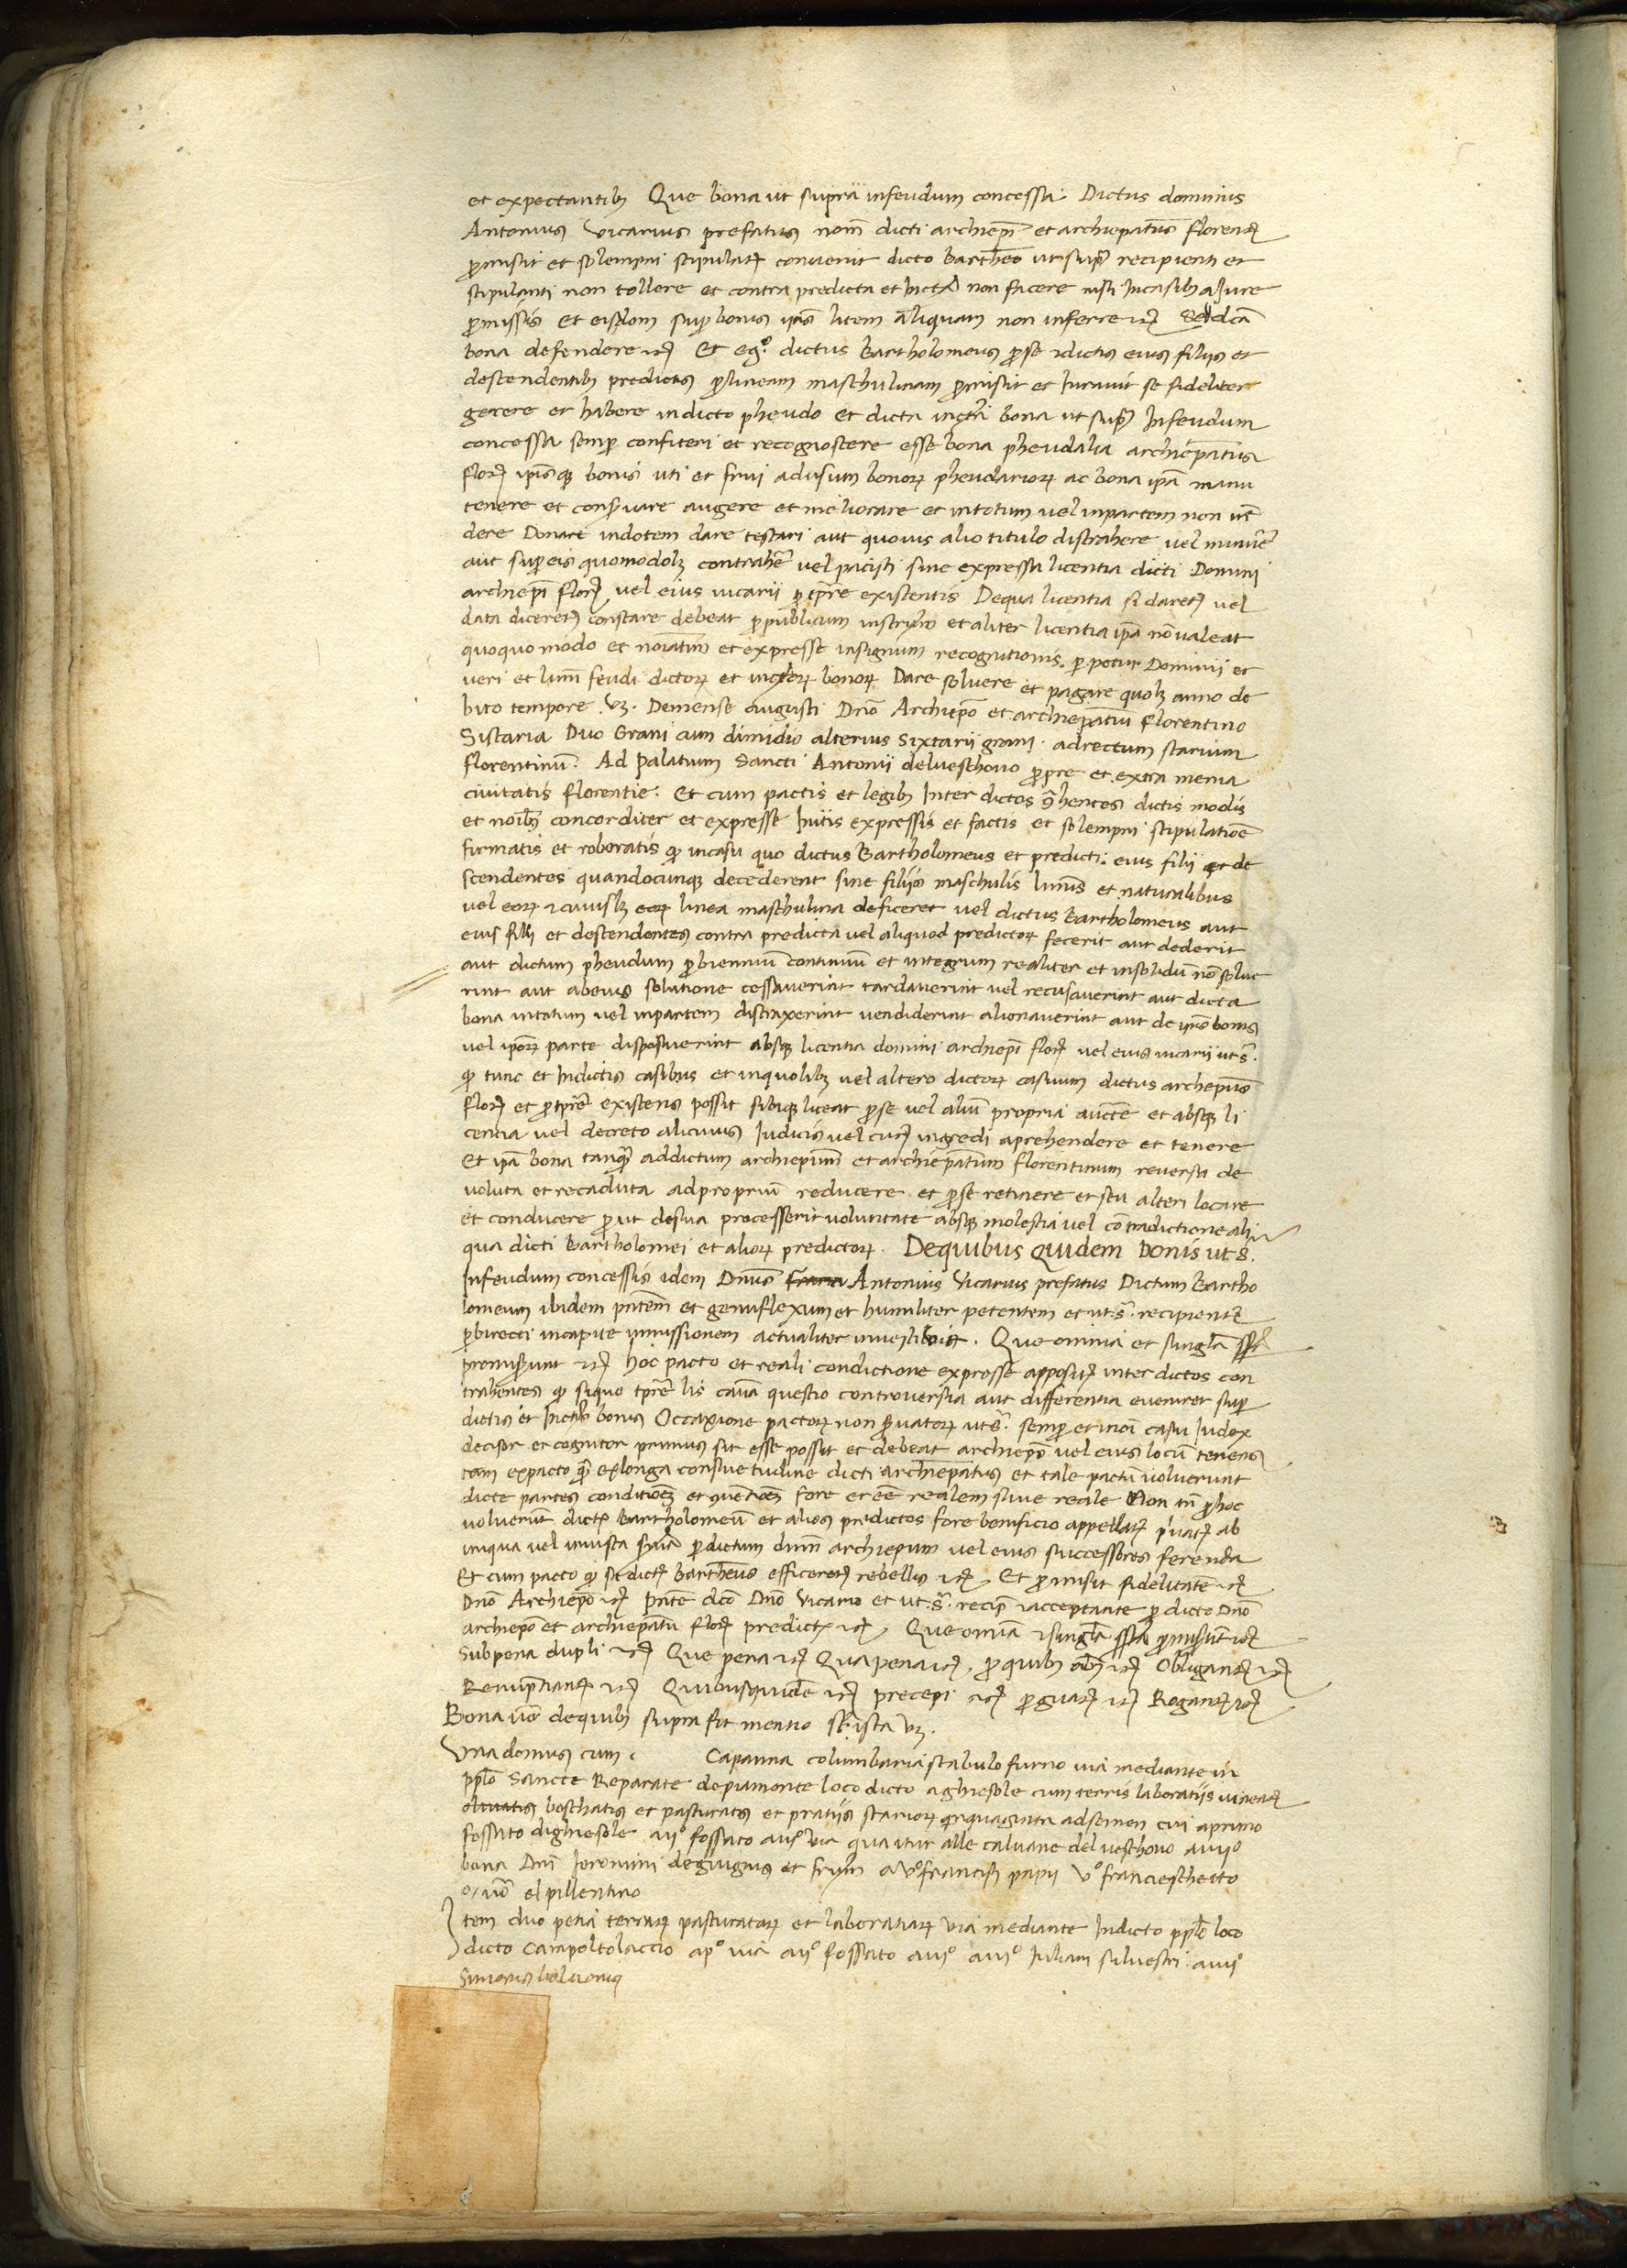 et expectantib Que bona ut supra infeudum concessa Dictus dominus
Antonius vicarius prefatus nom dicti archiepi et archiepatus floren
promisit et solempni stipulat convenit dicto Bartheo ut supra recipienti et
stipulanti non tollere et contra predicta et infta non facere nisi in casib a Jure
promissis et eisdem super bonis litem aliquam non inferre etc Sed dca
bona defendere etc Et ego dictus Bartholomeus pro se et dictis eius filijs et
descendentib predictis per lineam maschulinam promisit et Iuravit se fideliter
gerere et habere in dicto pheudo et dicta infta bona ut supra Infeudum
concessa semper confiteri et recognoscere esse bona pheudalia archiepatus
flore ipisque bonis uti et frui ad usum bonor pheudarior ac bona ipa manu
tenere et conservare augere et meliorare et in totum vel in partem non ven
dere Donare in dotem dare testari aut quovis alio titulo distrahere vel minuere
aut super eis quomodolz contrahere vel pacisci sine expressa licentia dicti Domini
archiepi flore vel eius vicarii pro tpre existentis De qua licentia si daretur vel
data diceretur constare debeat per publicum instrum et aliter licentia ipa no valeat
quoquo modo et noiatim et expresse in signum recognitionis perpetui Dominii et
veri et lim feudi dictor et inftor bonor Dare solvere et pagare quolz anno de
bito tempore vz. De mense augusti Dno Archiepo et archiepatui florentino
Sistaria Duo Grani cum dimidio alterius sixtarii grani ad rectum starium
florentinu. Ad palatium Sancti Antonii del veschovo prope et extra menia
civitatis florentie. Et cum pactis et legib Inter dictos contrahentes dictis modis
et noib concorditer et expresse Initis expressis et factis et solempni stipulatioe
firmatis et roboratis quod in casu quo dictus Bartholomeus et predicti eius filii et de
scendentes quandocunque decederent sine filijs maschulis limis et naturalibus
vel eor et cuiuslz eor linea maschulina deficeret vel dictus Bartholomeus aut
eius filii et descendentes contra predicta vel aliquod predictor fecerit aut dederit
aut dictum pheudum per biennium continuu et integrum realiter et insolidu no solve
rint aut ab eius solutione cessaverint tardaverint vel recusaverint aut dicta
bona in totum vel in partem distraxerint vendiderint alienaverint aut de ipis bonis
vel ipor parte disposuerint absque licentia domini archiepi flore vel eius vicarii ut s.
quod tunc et In dictis casibus et in quolibz vel altero dictor casuum dictus archiepus
flore et pro tpre existens possit sibique liceat per se vel aliu propria aucte et absque li
centia vel decreto alicuius Iudicis vel curie ingredi aprehendere et tenere
Et ipa bona tanqua ad dictum archiepum et archiepatum florentinum reversa de
voluta et recaduta ad propriu reducere et per se retinere et seu alteri locare
et conducere prout de sua processerit voluntate absque molestia vel contradictione ali
qua dicti Bartholomei et alior predictor. De quibus quidem bonis ut s.
Infeudum concessis idem Dnus Antonius Vicarius prefatus Dictum Bartho
lomeum ibidem pntem et genuflexum et humiliter petentem et ut s. recipiente
per birecti in capite immissionem actualiter investivit. Que omnia et singla
promiserunt etc hoc pacto et reali condictione expresse apposit inter dictos con
trahentes quod si quo tpre lis causa questio controversia aut differentia eveniret super
dictis et Inftis bonis Occaxione pactor non servator ut s. semper et in oi casu Iudex
decisor et cognitor primus sit esse possit et debeat archiepo vel eius locu tenens
tam ex pacto qua ex longa consuetudine dicti archiepatus et tale pactu voluerunt
dicte partes conditioes et conventioes fore et ee realem sive reale Non tn per hoc
voluerunt dict Bartholomeu et alios predictos fore benificio appellat privat ab
iniqua vel iniusta snia per dictum dnm archiepum vel eius successores ferenda
Et cum pacto quod si dict Bartheus efficeretur rebellis etc Et promisit fidelitatem etc
Dno Archiepo etc pnte dco Dno Vicario et ut s. recip et acceptante pro dicto Dno
archiepo et archiepatu flore predict etc Que omnia et singla promiserunt etc
Sub pena dupli etc Que pena etc Qua pena etc pro quibus obs etc Obligant etc
Renuptiant etc Quibus quide etc precepi etc per guar etc Rogant etc
Bona vo de quib supra fit mentio st ista vz.
Una domus cum Capanna columbaria stabulo furno via mediante in
pplo Sancte Reparate de piamonte loco dicto a ghiesole cum terris laboratiis vineat
olivatis boschatis et pasturatis et pratiis starior quaraginta ad semen cui a primo
fossato di ghiesole a ij° fossato a iij° via qua itur alle calvane del veschovo a iiij°
bona Dni Ieronimi de giugnis et frum a v° francisci papii v° francieschetto
o/ vo el pillentino
Item duo petia terrar pasturatar et laboratiar via mediante In dicto pplo loco
dicto campoltolaccio a p° via a ij° fossato a iij° a iiij° Iuliani silvestri a iiij°